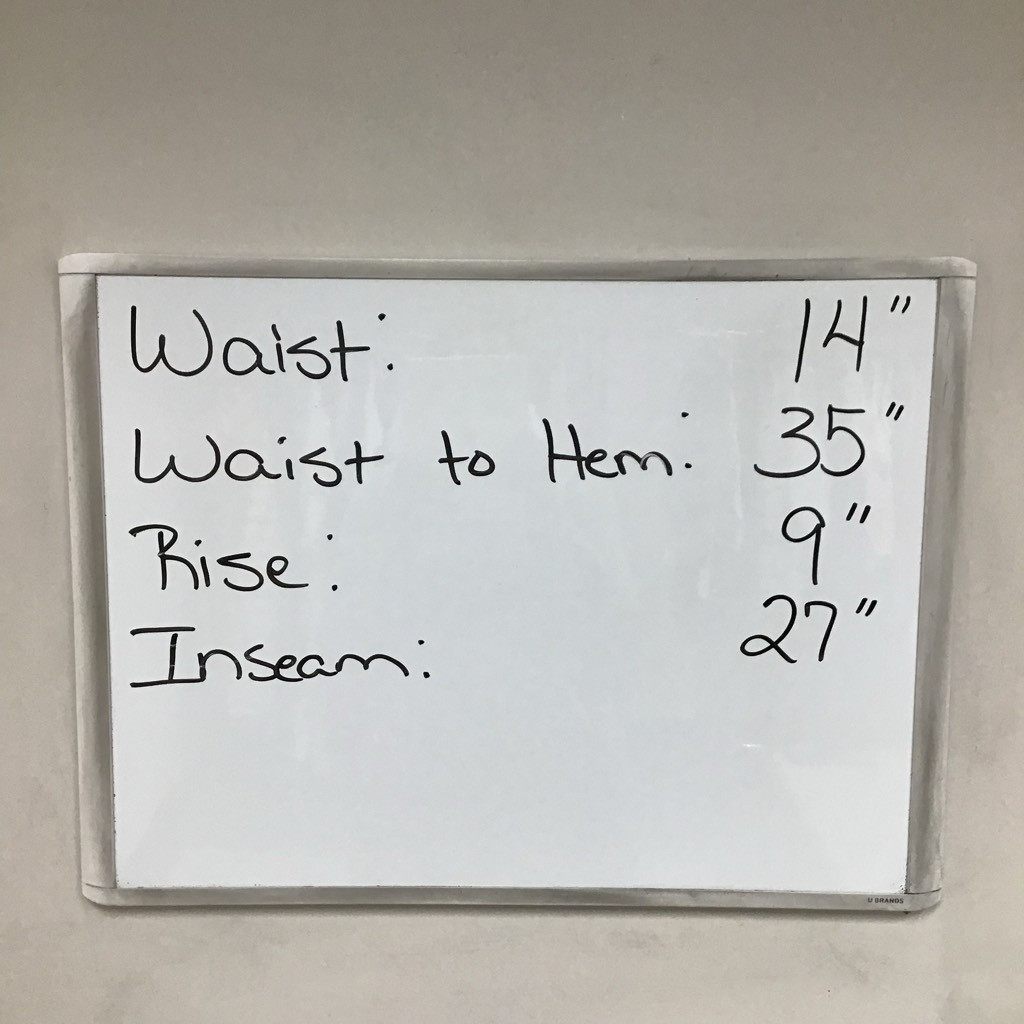 Waist: 14"
Waist to Hem: 35"
Rise: 9"
Inseam: 27"
U BRANDS